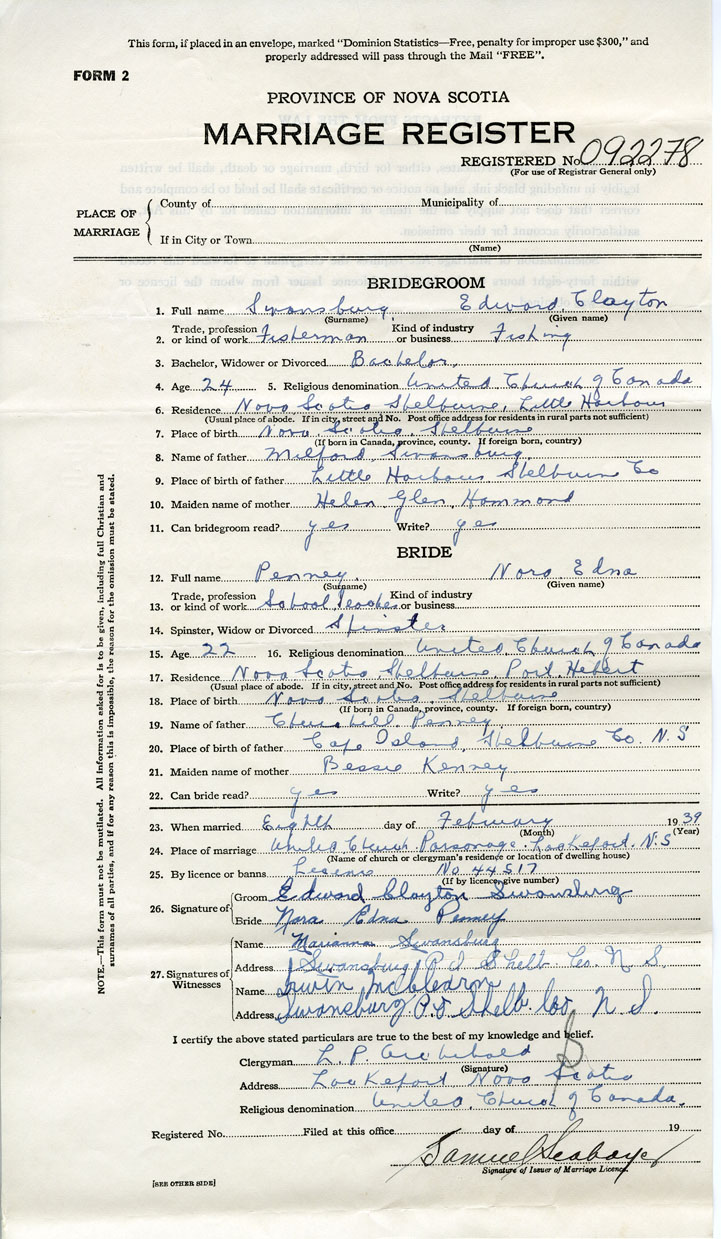 This form, if placed in an envelope, marked "Dominion Statistics—Free, penalty for improper use $300," and
properly addressed will pass through the Mail "FREE".
FORM 2
PROVINCE OF NOVA SCOTIA
MARRIAGE REGISTER
REGISTERED No. 092278
(For use of Registrar General only)
PLACE OF MARRIAGE
County of Municipality of
If in City or Town
(Name)
BRIDEGROOM
1. Full name Swansburg, Edward Clayton
(Surname) (Given name)
Trade, profession Kind of industry
2. or kind of work Fisherman or business Fishing
3. Bachelor, Widower or Divorced Bachelor.
4. Age 24 5. Religious denomination United Church of Canada
6. Residence Nova Scotia Shelburne, Little Harbour
(Usual place of abode. If in city, street and No. Post office address for residents in rural parts not sufficient)
7. Place of birth Nova Scotia, Shelburne
(If born in Canada, province, county. If foreign born, country)
8. Name of father Milford Swansburg
9. Place of birth of father Little Harbour Shelburne Co
10. Maiden name of mother Helen Glen Hammond
11. Can bridegroom read? yes Write? yes
BRIDE
12. Full name Penney, Nora Edna
(Surname) (Given name)
Trade, profession Kind of industry
13. or kind of work School Teacher or business
14. Spinster, Widow or Divorced Spinster
15. Age 22 16. Religious denomination United Church of Canada
17. Residence Nova Scotia Shelburne Port Hebert
(Usual place of abode. If in city, street and No. Post office address for residents in rural parts not sufficient)
18. Place of birth Nova Scotia Shelburne
(If born in Canada, province, county. If foreign born, country)
19. Name of father Churchill Penney
20. Place of birth of father Cape Island, Shelburne Co. N.S
21. Maiden name of mother Bessie Kenney
22. Can bride read? yes Write? yes
23. When married Eighth day of February 1939
(Month) (Year)
24. Place of marriage United Church Parsonage. Lockeport. N.S
(Name of church or clergyman's residence or location of dwelling house)
25. By licence or banns License No. 44517
(If by licence, give number)
26. Signature of Groom Edward Clayton Swansburg
Bride Nora Edna Penney
27. Signatures of Witnesses
Name Marianna Swansburg
Address Swansburg P.O Shelb. Co. N S.
Name Irwin McClearn
Address Swansburg P.O Shelb Co N S.
I certify the above stated particulars are true to the best of my knowledge and belief.
Clergyman L. P. Archibald
(Signature)
Address Lockeport Nova Scotia
Religious denomination United Church of Canada.
Registered No. Filed at this office day of 19
Samuel Seaboyer
Signature of Issuer of Marriage Licence.
[SEE OTHER SIDE]
NOTE.—This form must not be mutilated. All information asked for is to be given, including full Christian and
surnames of all parties, and if for any reason this is impossible, the reason for the omission must be stated.